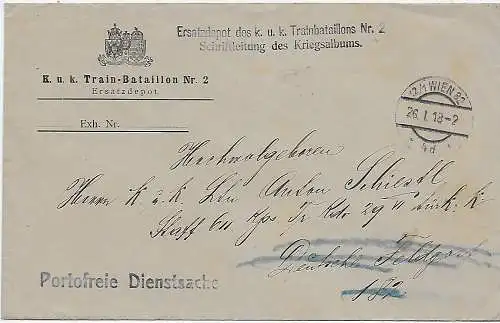 Ersatzdepot des k. u. k. Trainbataillons Nr. 2
Schriftleitung des Kriegsalbums.
K. u. k. Train-Bataillon Nr. 2
Ersatzdepot.
Exh. Nr.
12/1 WIEN 82
26. I. 18-2
4d
Hochwolgeboren
Herrn k. u. k. Ltn Anton Schiestl
Staff 6n Kps Tr. Kdo 29 türk. K
Deutsche Feldpost
182
Portofreie Dienstsache